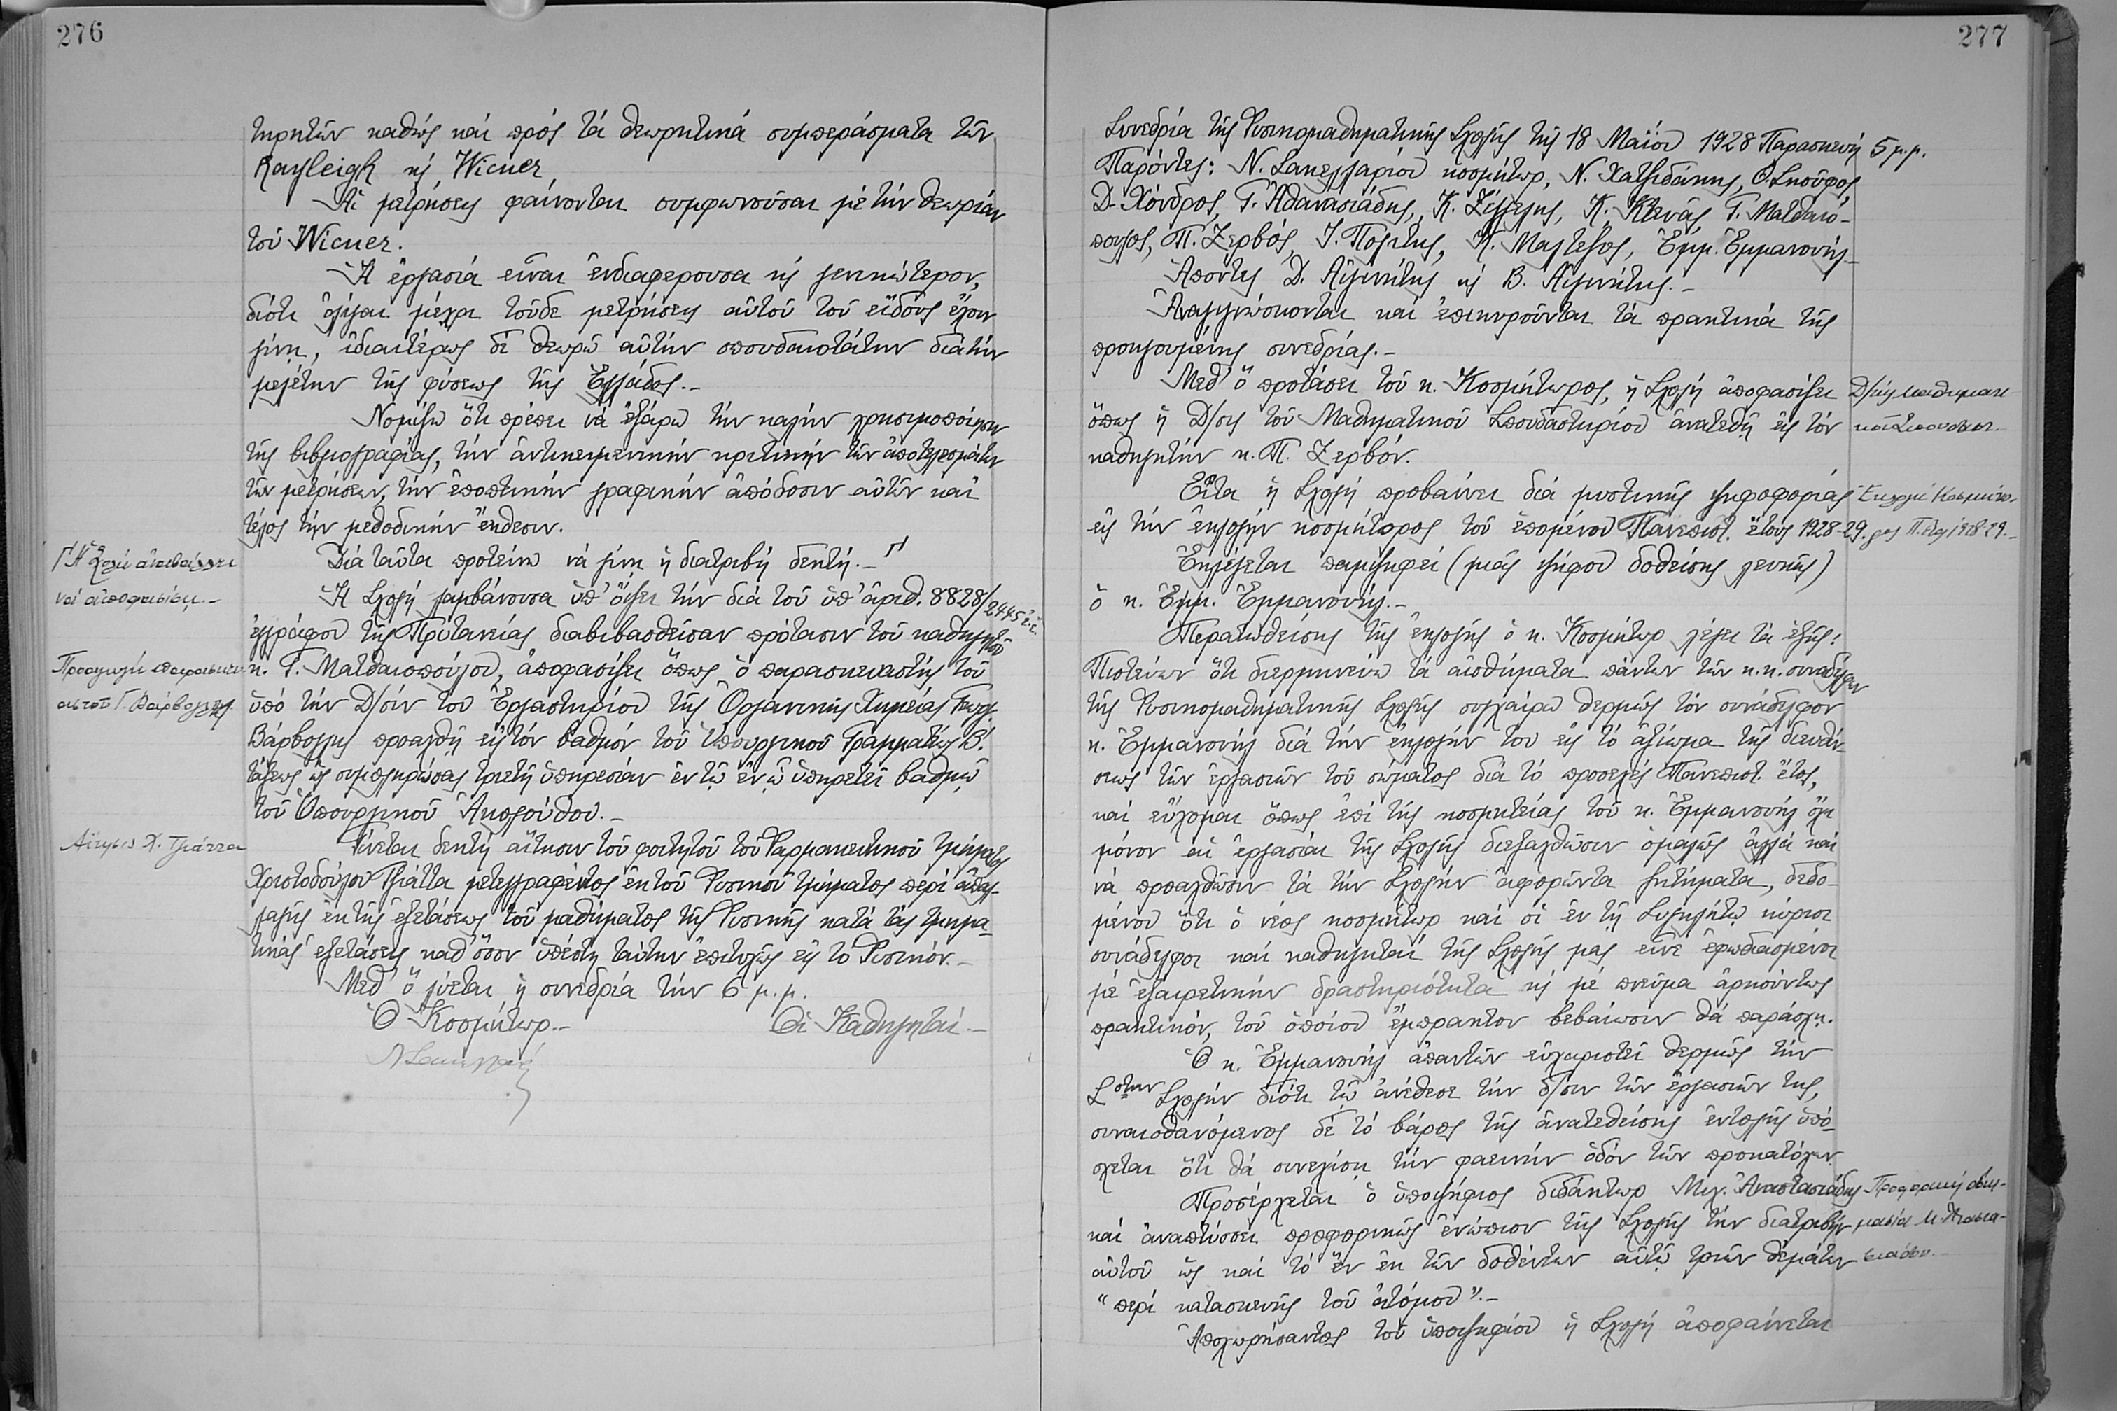 276
τηρητῶν καθὼς καὶ πρὸς τὰ θεωρητικὰ συμπεράσματα τῶν
Rayleigh κ' Wiener
Αἱ μετρήσεις φαίνονται συμφωνοῦσαι μὲ τὴν θεωρίαν
τοῦ Wiener.
Ἡ ἐργασία εἶναι ἐνδιαφέρουσα κ' γενικώτερον,
διότι ὀλίγαι μέχρι τοῦδε μετρήσεις αὐτοῦ τοῦ εἴδους ἔχουν
γίνῃ, ἰδιαιτέρως δὲ θεωρῶ αὐτὴν σπουδαιοτάτην διὰ τὴν
μελέτην τῆς φύσεως τῆς Ἑλλάδος.-
Νομίζω ὅτι πρέπει νὰ ἐξάρω τὴν καλὴν χρησιμοποίησιν
τῆς βιβλιογραφίας, τὴν ἀντικειμενικὴν κριτικὴν τῶν ἀποτελεσμάτων
τῶν μετρήσεων, τὴν ἐποπτικὴν γραφικὴν ἀπόδοσιν αὐτῶν καὶ
τέλος τὴν μεθοδικὴν ἔκθεσιν.
Διὰ ταῦτα προτείνω νὰ γίνῃ ἡ διατριβὴ δεκτή.- Γ'
Γ'Ἡ Σχολὴ ἀποδέχεται
καὶ ἀποφασίζει.-
Ἡ Σχολὴ λαμβάνουσα ὑπ' ὄψει τὴν διὰ τοῦ ὑπ' ἀριθ. 8828/2445 ἐ.ἔ.
ἐγγράφου τῆς Πρυτανείας διαβιβασθεῖσαν πρότασιν τοῦ καθηγητοῦ
κ. Γ. Ματθαιοπούλου, ἀποφασίζει ὅπως ὁ παρασκευαστὴς τοῦ
ὑπὸ τὴν Δ/σίν του Ἐργαστηρίου τῆς Ὀργανικῆς Χημείας Γεωργ.
Βάρβογλης προαχθῇ εἰς τὸν βαθμὸν τοῦ Ὑπουργικοῦ Γραμματέως Β΄.
τάξεως ὡς συμπληρώσας τριετῆ ὑπηρεσίαν ἐν τῷ ἐν ᾧ ὑπηρετεῖ βαθμῷ
τοῦ Ὑπουργικοῦ Ἀκολούθου.-
Προαγωγὴ παρασκευ-
αστοῦ Γ. Βάρβογλη
Γίνεται δεκτὴ αἴτησιν τοῦ φοιτητοῦ τοῦ Φαρμακευτικοῦ Τμήματος
Χριστοδούλου Τζιάττα μετεγγραφέντος ἐκ τοῦ Φυσικοῦ τμήματος περὶ ἀπαλ-
λαγῆς ἐκ τῆς ἐξετάσεως τοῦ μαθήματος τῆς Φυσικῆς κατὰ τὰς τμημα-
τικὰς ἐξετάσεις καθ' ὅσον ὑπέστη ταύτην ἐπιτυχῶς εἰς τὸ Φυσικόν.-
Αἴτησις Χ. Τζιάττα
Μεθ' ὃ λύεται ἡ συνεδρία τὴν 6 μ.μ.
Ὁ Κοσμήτωρ.-
Οἱ Καθηγηταί.-
277
Συνεδρία τῆς Φυσικομαθηματικῆς Σχολῆς τῇ 18 Μαΐου 1928 Παρασκευὴ 5 μ.μ.
Παρόντες: Ν. Σακελλαρίου κοσμήτωρ, Ν. Χατζιδάκης, Θ. Σκοῦφος,
Δ. Χόνδρος, Γ. Ἀθανασιάδης, Κ. Ζέγγελης, Κ. Κτενᾶς, Γ. Ματθαιό-
πουλος, Π. Ζερβός, Ι. Πολίτης, Κ. Μαλτέζος, Ἐμμ. Ἐμμανουήλ.-
Ἀπόντες Δ. Αἰγινήτης κ' Β. Αἰγινήτης.-
Ἀναγιγνώσκονται καὶ ἐπικυροῦνται τὰ πρακτικὰ τῆς
προηγουμένης συνεδρίας.-
Μεθ' ὃ προτάσει τοῦ κ. Κοσμήτωρος, ἡ Σχολὴ ἀποφασίζει
ὅπως ἡ Δ/σις τοῦ Μαθηματικοῦ Σπουδαστηρίου ἀνατεθῇ εἰς τὸν
καθηγητὴν κ. Π. Ζερβόν.
Δ/σις Μαθηματι-
κοῦ Σπουδαστ.-
Εἶτα ἡ Σχολὴ προβαίνει διὰ μυστικῆς ψηφοφορίας
εἰς τὴν ἐκλογὴν κοσμήτορος τοῦ ἑπομένου Πανεπιστ. ἔτους 1928-29.
Ἐκλογὴ Κοσμήτο-
ρος Π. ἔτ. 1928-29.-
Ἐκλέγεται παμψηφεὶ (μιᾶς ψήφου δοθείσης λευκῆς)
ὁ κ. Ἐμμ. Ἐμμανουήλ.-
Περατωθείσης τῆς ἐκλογῆς ὁ κ. Κοσμήτωρ λέγει τὰ ἑξῆς:
Πιστεύων ὅτι διερμηνεύω τὰ αἰσθήματα πάντων τῶν κ.κ. συναδέλφων
τῆς Φυσικομαθηματικῆς Σχολῆς συγχαίρω θερμῶς τὸν συνάδελφον
κ. Ἐμμανουὴλ διὰ τὴν ἐκλογήν του εἰς τὸ ἀξίωμα τῆς διευθύν-
σεως τῶν ἐργασιῶν τοῦ σώματος διὰ τὸ προσεχὲς Πανεπιστ. ἔτος,
καὶ εὔχομαι ὅπως ἐπὶ τῆς κοσμητείας τοῦ κ. Ἐμμανουὴλ ὄχι
μόνον αἱ ἐργασίαι τῆς Σχολῆς διεξαχθῶσιν ὁμαλῶς ἀλλὰ καὶ
νὰ προαχθῶσιν τὰ τὴν Σχολὴν ἀφορῶντα ζητήματα, δεδο-
μένου ὅτι ὁ νέος κοσμήτωρ καὶ οἱ ἐν τῇ Συγκλήτῳ κύριοι
συνάδελφοι καὶ καθηγηταὶ τῆς Σχολῆς μας εἶνε ἐφωδιασμένοι
μὲ ἐξαιρετικὴν δραστηριότητα κ' μὲ πνεῦμα ἀρκούντως
πρακτικόν, τοῦ ὁποίου ἔμπρακτον βεβαίωσιν θὰ παράσχῃ.
Ὁ κ. Ἐμμανουὴλ ἀπαντῶν εὐχαριστεῖ θερμῶς τὴν
Σστην Σχολὴν διότι τῷ ἀνέθεσε τὴν δ/σιν τῶν ἐργασιῶν της,
συναισθανόμενος δὲ τὸ βάρος τῆς ἀνατεθείσης ἐντολῆς ὑπό-
σχεται ὅτι θὰ συνεχίσῃ τὴν φαεινὴν ὁδὸν τῶν προκατόχων
Προσέρχεται ὁ ὑποψήφιος διδάκτωρ Μιχ. Ἀναστασιάδης
καὶ ἀναπτύσσει προφορικῶς ἐνώπιον τῆς Σχολῆς τὴν διατριβὴν
αὐτοῦ ὡς καὶ τὸ ἓν ἐκ τῶν δοθέντων αὐτῷ τριῶν θεμάτων
"περὶ κατασκευῆς τοῦ ἀτόμου".-
Προφορικὴ δοκι-
μασία Μ. Ἀναστα-
σιάδου.-
Ἀποχωρήσαντος τοῦ ὑποψηφίου ἡ Σχολὴ ἀποφαίνεται